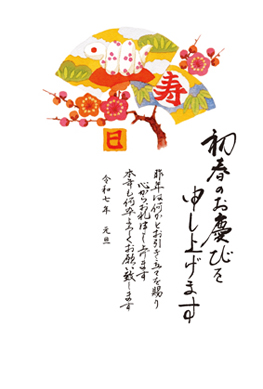 寿
巳
初春のお慶びを
申し上げます
昨年は何かとお引き立てを賜り
心からお礼申し上げます
本年も何卒よろしくお願い致します
令和七年 元旦